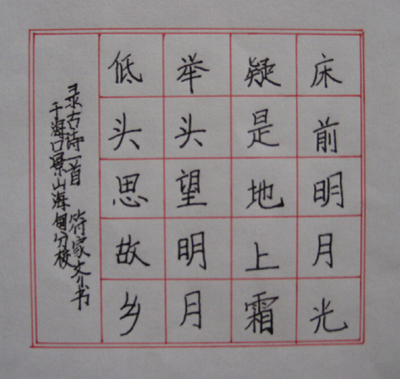 床前明月光
疑是地上霜
举头望明月
低头思故乡
录古诗一首 符家文书
于海口景山海甸分校